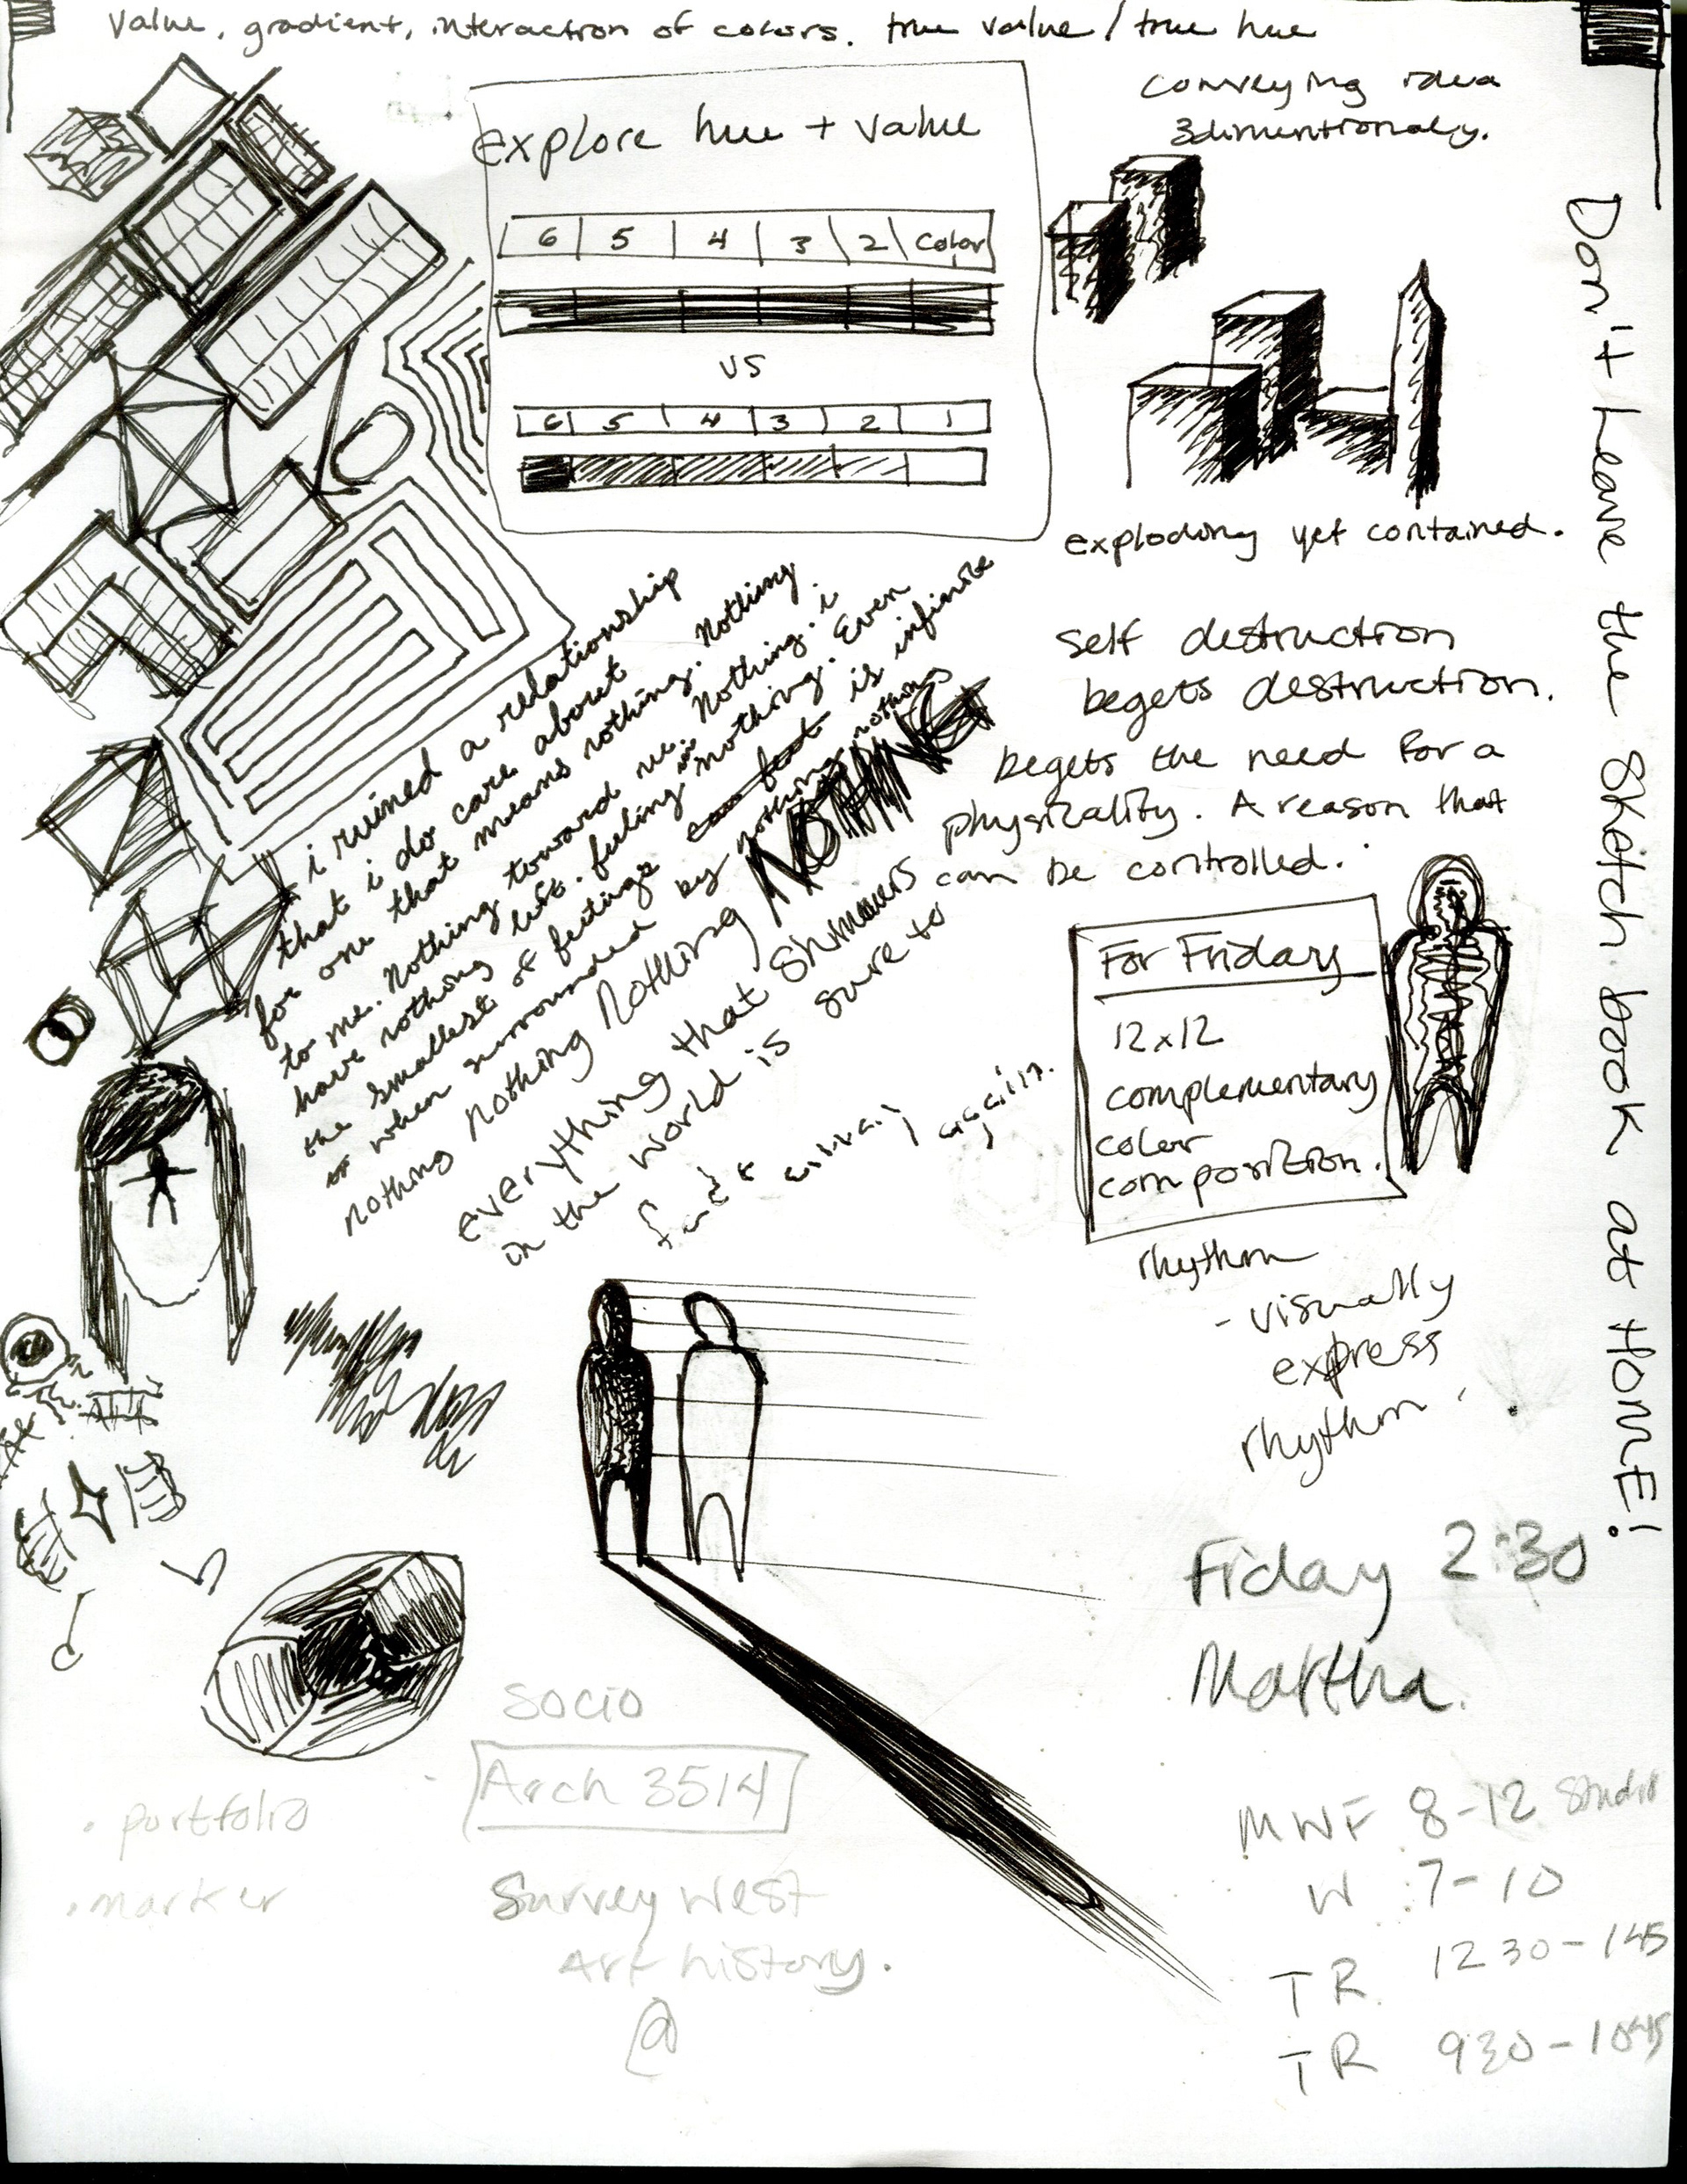 value, gradient, interaction of colors. true value / true hue
explore hue + value
6 5 4 3 2 Color
vs
6 5 4 3 2 1
conveying idea
3dimentionaly.
exploding yet contained.
Don't Leave the Sketch book at HOME!
self destruction
begets destruction.
begets the need for a
physicality. A reason that
can be controlled.
i ruined a relationship
that i do care about
for one that means nothing. Nothing
to me. Nothing toward me. Nothing. i
have nothing left. feeling nothing. Even
the smallest of feelings is infinite
when surrounded by nothing nothing
nothing nothing nothing NOTHING
everything that shimmers
in the world is sure to
fade away again.
For Friday
12x12
complementary
color
composition.
rhythm
- visually
express
rhythm
Friday 2:30
Martha.
socio
Arch 3514
Survey West
Art history.
@
• portfolio
• marker
MWF 8-12 Studio
W 7-10
TR 1230-145
TR 930-1045